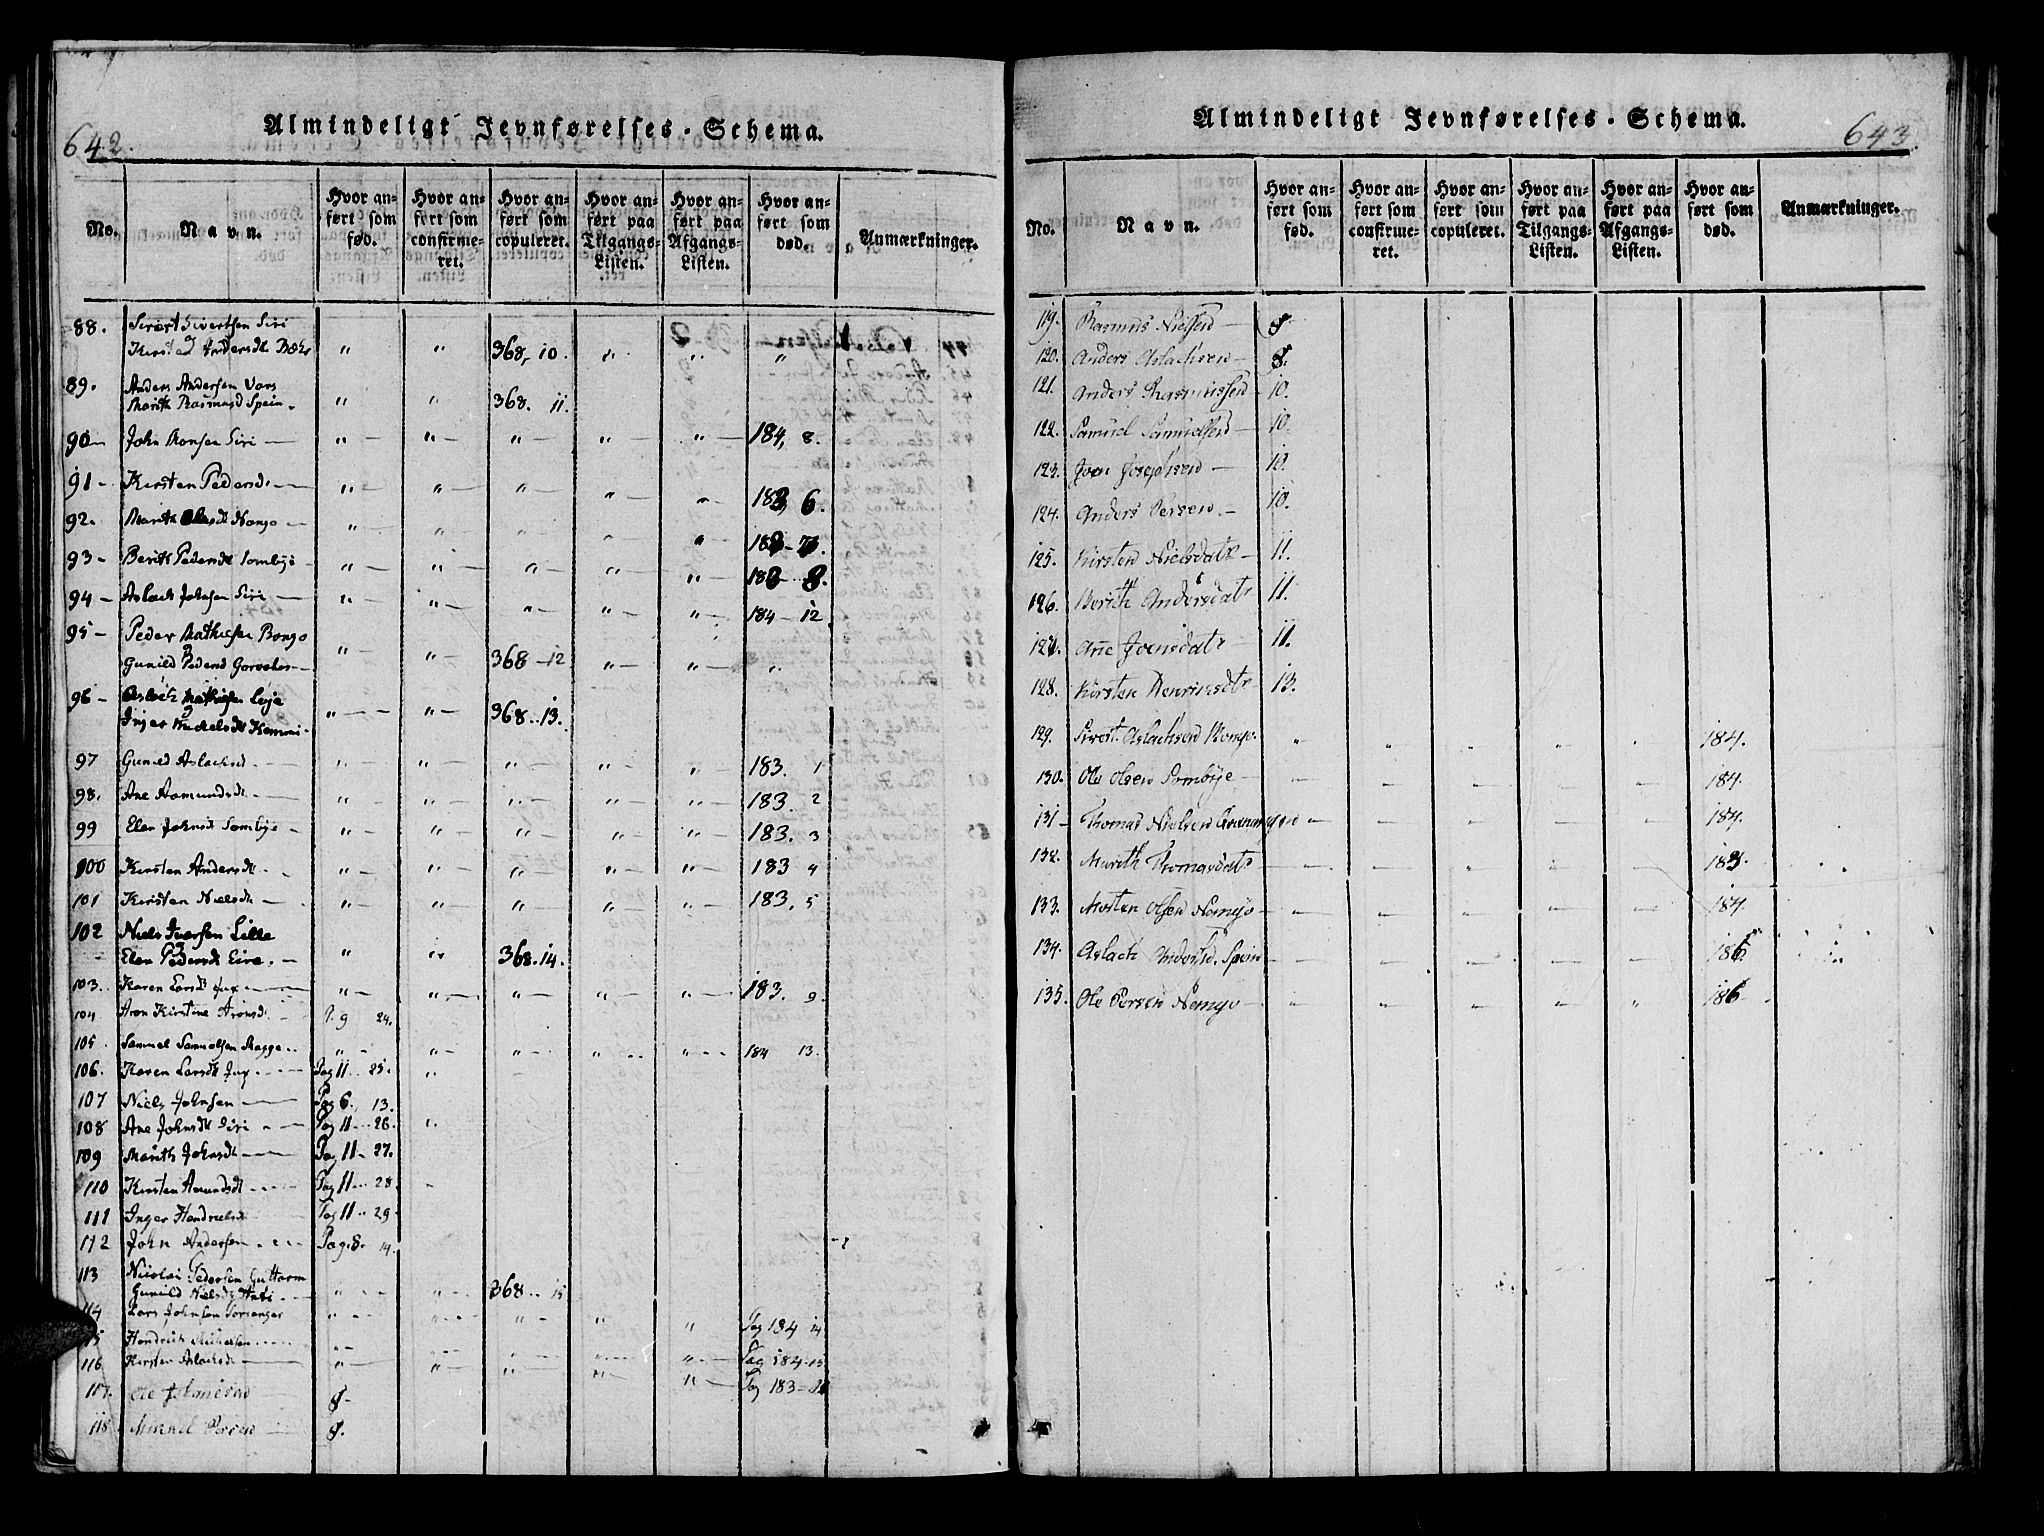 642.
Almindeligt Jevnførelses-Schema.
No. Navn. Hvor anført som fød. Hvor anført som confirmeret. Hvor anført som copuleret. Hvor anført paa Tilgangs-Listen. Hvor anført paa Afgangs-Listen. Hvor anført som død. Anmærkninger.
88. Sivert Sivertsen Siri
Kirsted Andersdt " " 368, 10. " " "
89. Anders Andersen Vars
Marith Rasmusd Spein. " " 368. 11.
90 John Monsen Siri " " " " " 184, 8.
91 Kirsten Pedersd. " " " " " 183, 6.
92. Marith Olesdt Nango " " " " 183 - 7.
93 Berith Pedersdt Sombye " " " " " 183 8.
94 Aslach Johnsen Siri " " " " " 184 - 12
95 Peder Mathiesen Bongo
Gunild Pedersd " " 368 - 12 " " "
96 Aslach Mathiesen Leja
Inger Michelsdt Kemmi " " 368. 13.
97 Gunild Aslachsd. " " " " " 183. 1
98. Ane Aamundsdt " " " " " 183. 2
99 Elen Johnsd Sombye " " " " " 183. 3
100 Kirsten Andersdt. " " " " " 183 4
101 Kirsten Nielsdt " " " " " 183. 5
102 Niels Iversen Lille
Elen Pedersdt Eira. " " 368. 14.
103. Karen Larsdt Jux " " " " " 183. 9.
104 Aron Kirstine Aronsd. P. 9 24.
105 Sammel Samuelsen Ragge " " " " " 184 13.
106. Karen Larsdt Jux Pag 11 25. "
107 Niels Johnsen Pag 6. 13.
108 Ane Johnsdt Siri Pag 11 26. "
109 Marith Johnsdt Pag 11 - 27.
110 Kirsten Amundsdt Pag 11 28.
111 Inger Hendrichsd Pag 11 29
112 John Andersen Pag. 8. 14.
113 Nicolai Pedersen Guttorm
Gunild Nielsdt Anti " " 368. 15
114 Lars Johnsen Porsanger " " " " " Pag 184 14
115 Hendrich Michelsen " " " " " Pag 184. 15
116 Kirsten Aslachsdt " " " " " Pag 183 -
117. Ole Johnesen 9.
118 Mikkel Persen 9.
643.
Almindeligt Jevnførelses-Schema.
No. Navn. Hvor anført som fød. Hvor anført som confirmeret. Hvor anført som copuleret. Hvor anført paa Tilgangs-Listen. Hvor anført paa Afgangs-Listen. Hvor anført som død. Anmærkninger.
119. Rasmus Nielsen 9.
120. Anders Aslachsen 9.
121. Anders Rasmussen 10.
122. Samuel Samuelsen 10.
123. Joen Josephsen 10.
124. Anders Persen 10.
125. Kirsten Nielsdatr 11.
126. Berith Andersdatr 11.
127. Ane Joensdatr 11.
128. Kirsten Henriksdtr 13.
129. Sivert Aslachsen Bongo. " " " " " 184.
130. Ole Olsen Sombye 184.
131 Thomas Nielsen 184.
132. Marith Thomasdatr 183.
133. Morten Olsen Nango 184.
134. Aslach Anders. Spein 186.
135. Ole Persen Nango " " " " " 186